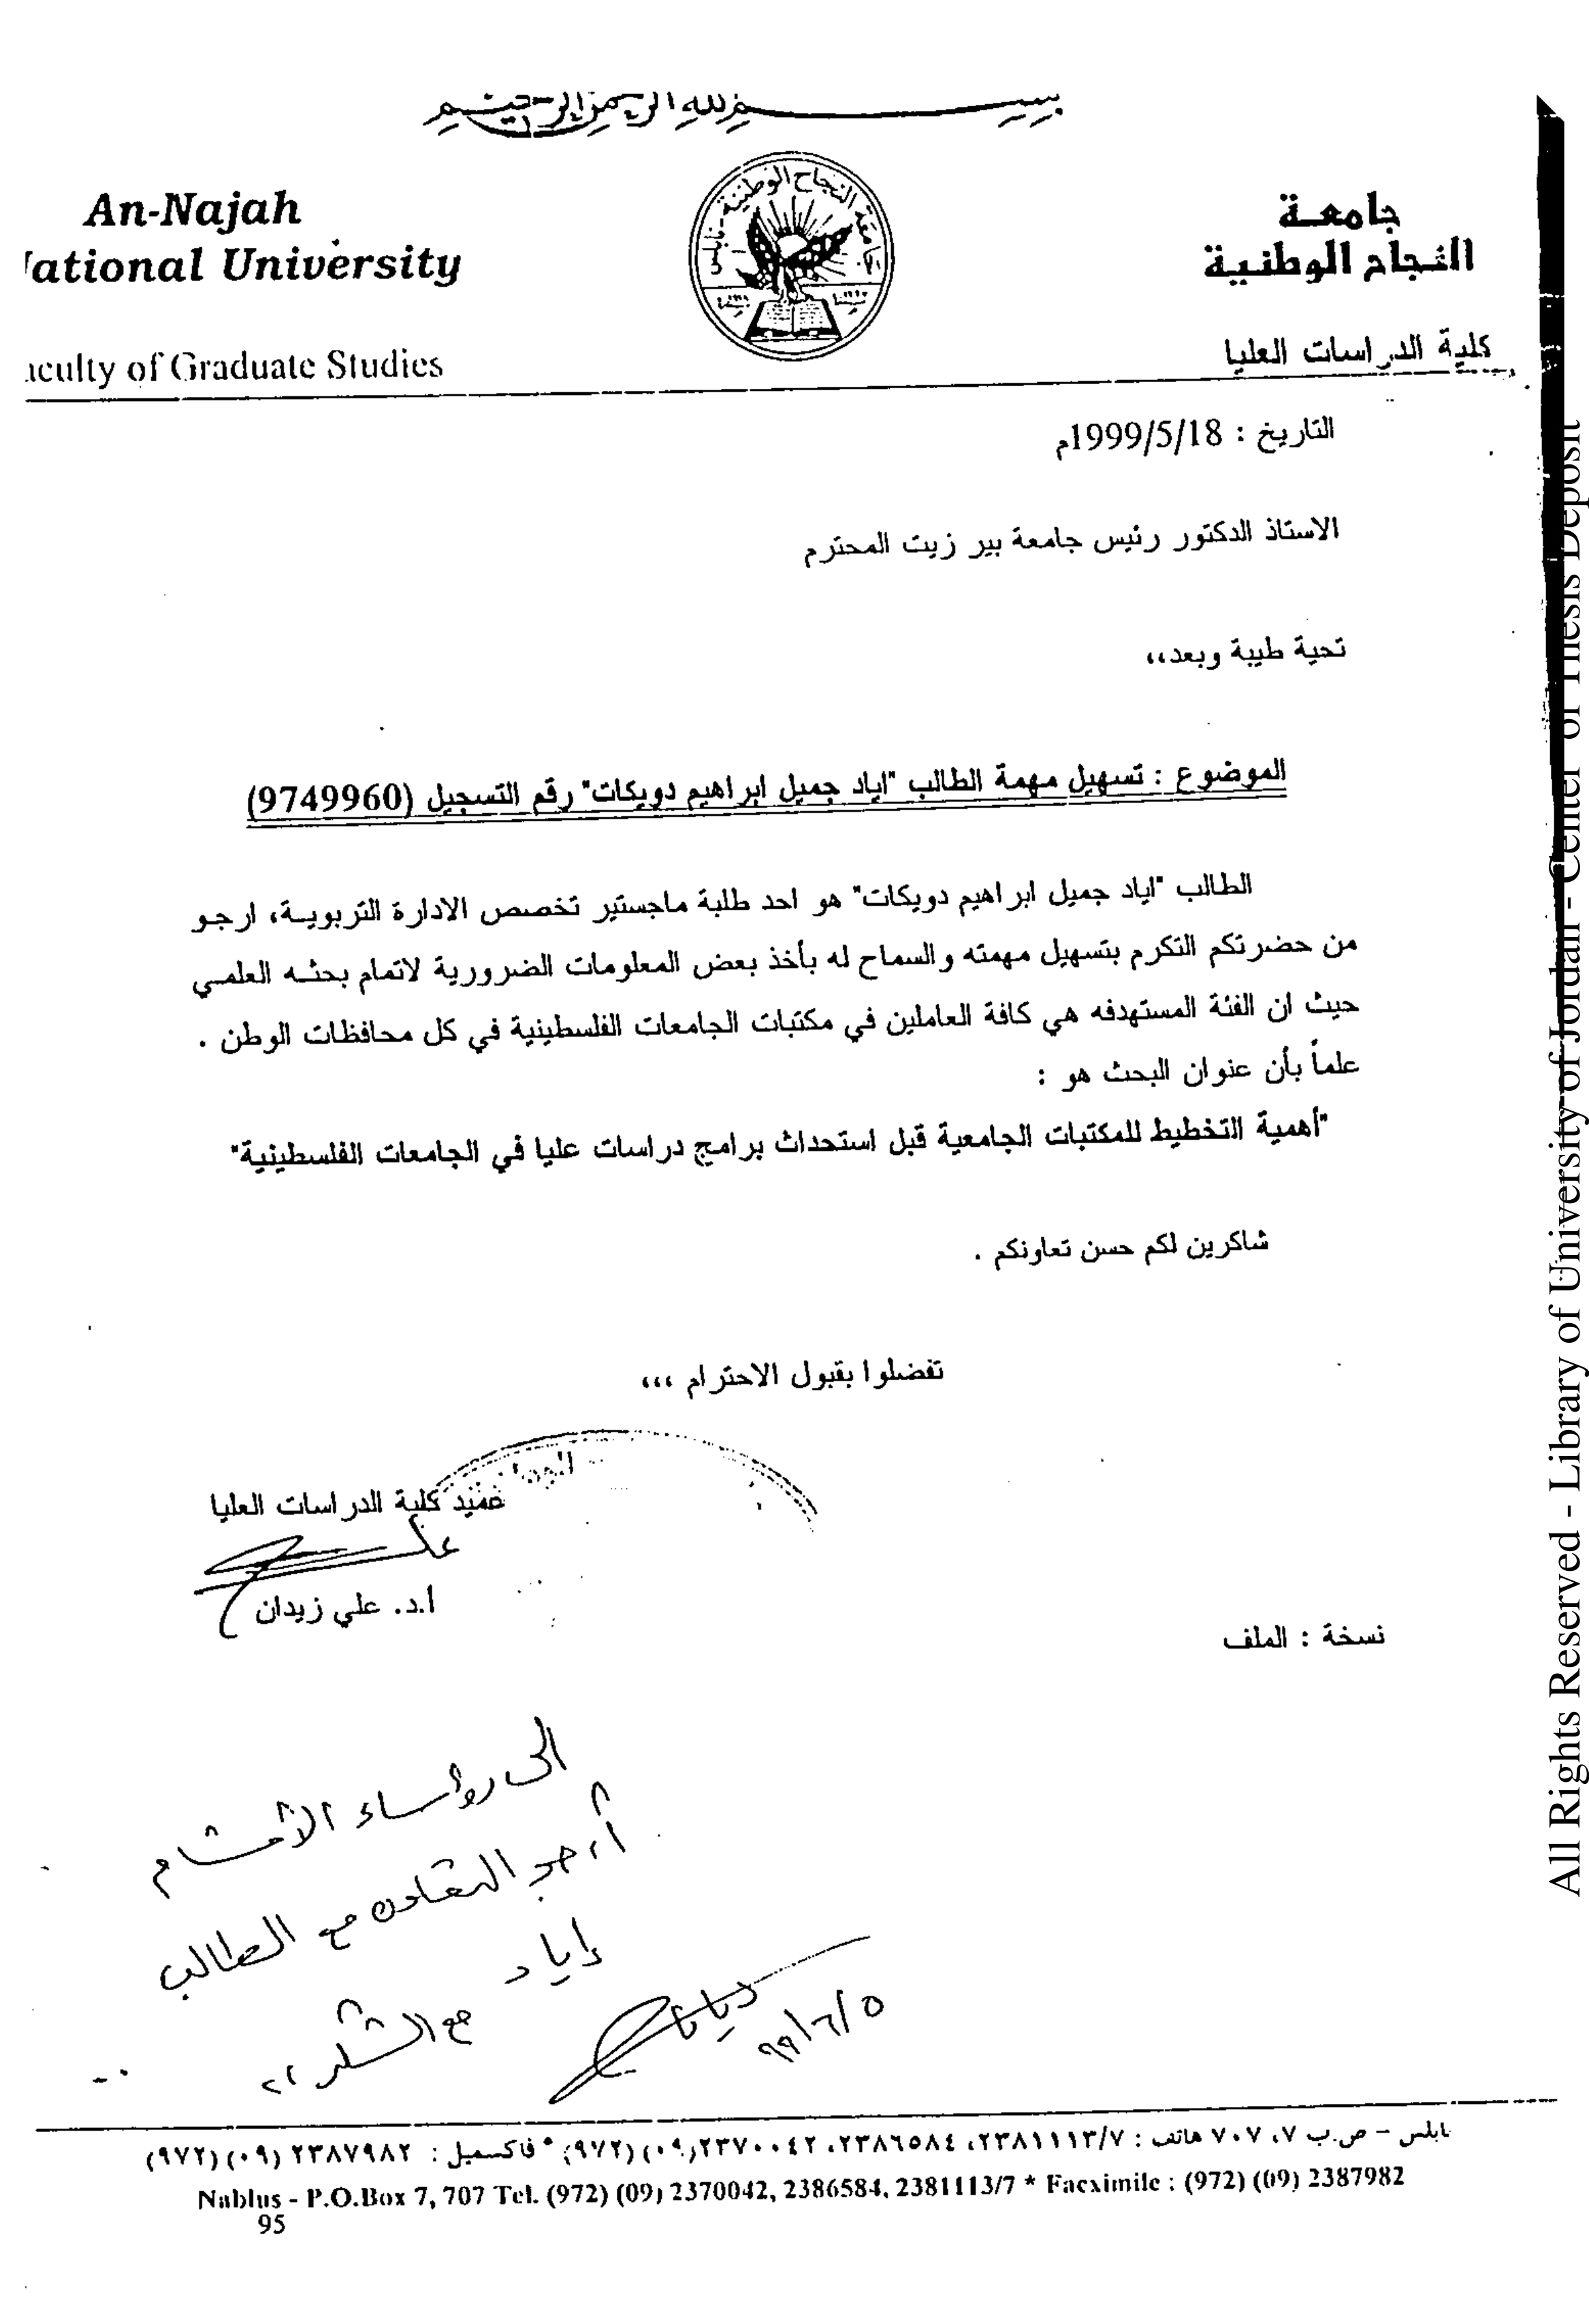 بسم الله الرحمن الرحيم
An-Najah
ational University
جامعة
النجاح الوطنية
جامعة النجاح الوطنية - نابلس
aculty of Graduate Studies
كلية الدراسات العليا
التاريخ : 1999/5/18م
الاستاذ الدكتور رئيس جامعة بير زيت المحترم
تحية طيبة وبعد،،
الموضوع : تسهيل مهمة الطالب "اياد جميل ابراهيم دويكات" رقم التسجيل (9749960)
الطالب "اياد جميل ابراهيم دويكات" هو احد طلبة ماجستير تخصص الادارة التربوية، ارجو
من حضرتكم التكرم بتسهيل مهمته والسماح له بأخذ بعض المعلومات الضرورية لاتمام بحثه العلمي
حيث ان الفئة المستهدفه هي كافة العاملين في مكتبات الجامعات الفلسطينية في كل محافظات الوطن .
علماً بأن عنوان البحث هو :
"أهمية التخطيط للمكتبات الجامعية قبل استحداث برامج دراسات عليا في الجامعات الفلسطينية"
شاكرين لكم حسن تعاونكم .
تفضلوا بقبول الاحترام ،،،
عميد كلية الدراسات العليا
أ.د. علي زيدان
نسخة : الملف
الى رؤساء الأقسام
أرجو التعاون مع الطالب
إياد
مع الشكر ،،
٩٩/٦/٥
نابلس - ص.ب ٧، ٧٠٧ هاتف : ٢٣٨١١١٣/٧، ٢٣٨٦٥٨٤، ٢٣٧٠٠٤٢(٠٩) (٩٧٢) * فاكسميل : ٢٣٨٧٩٨٢ (٠٩) (٩٧٢)
Nablus - P.O.Box 7, 707 Tel. (972) (09) 2370042, 2386584, 2381113/7 * Facximile : (972) (09) 2387982
95
All Rights Reserved - Library of University of Jordan - Center of Thesis Deposit